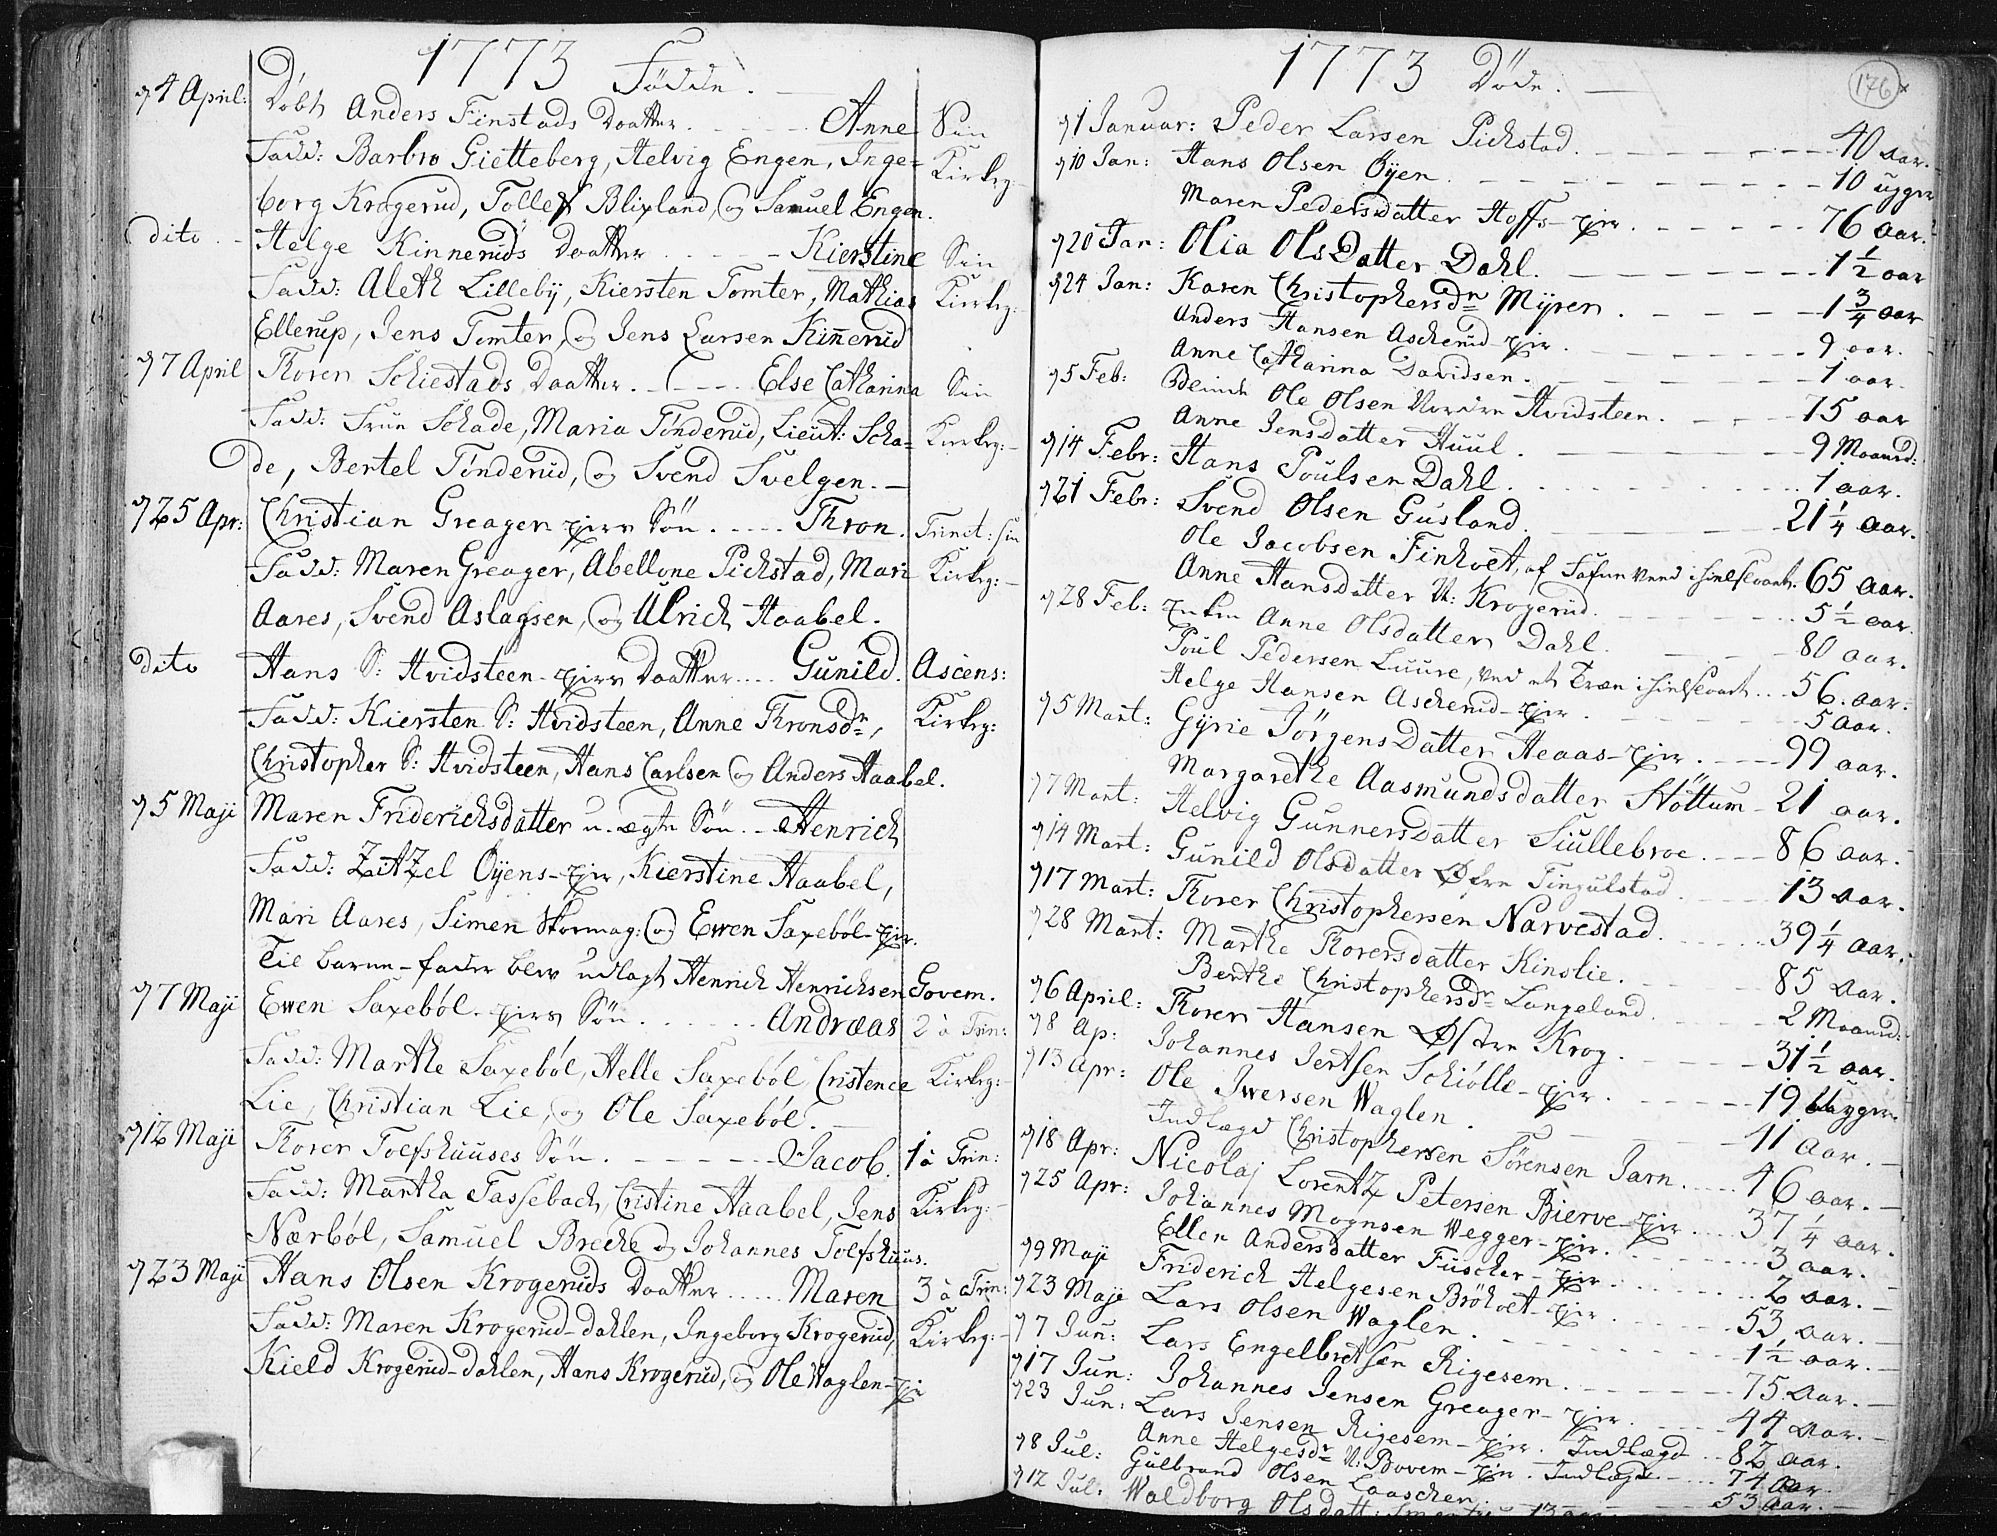 1773 Födde.
d 4 April: Döbt Anders Finstads Daatter. Anne Sin
Fadd: Barbro Gietteberg, Helvig Engen, Inge- Kirkeg:
borg Krogerud, Tollef Blixland, og Samuel Engen.
dito. Helge Kinneruds Daatter Kierstine Sin
Fadd: Aleth Lillebÿ, Kiersten Tomter, Mathias Kirkeg:
Ellerup, Jens Tomter, og Jens Larsen Kinerud
d 7 April Thorer Schiestads Daatter. Else Catharina Sin
Fadd: Frue Schade, Maria Tønderud, Lieut: Scha- Kirkeg:
de, Bertel Tønderud, og Svend Svelgen.
d 25 Apr: Christian Greager-ejers Sön. Thron. Trinit: Sin
Fadd: Maren Greager, Abellone Pichstad, Mari Kirkeg:
Aares, Svend Aslagsen, og Ulrich Haabel.
dito Hans S: Hvidsteen-ejers Daatter Gunild. Ascens:
Fadd: Kiersten S: Hvidsteen, Anne Thronsdr, Kirkeg:
Christopher S: Hvidsteen, Hans Carlsen og Anders Haabel.
d 5 Maji Maren Friderichsdatter u-ægte Sön. Henrich
Fadd: Zitzel Öyens-ejer, Kierstine Haabel,
Mari Aares, Simen Skomag: og Ewen Saxeböl-ejer.
Til barne-fader blev udlagt Henrich Henrichsen Govem.
d 7 Maji Ewen Saxeböl-ejers Sön Andreas 2 à Trin:
Fadd: Marthe Saxeböl, Helle Saxeböl, Cristence Kirkeg:
Lie, Christian Lie, og Ole Saxeböl.
d 12 Maji Thorer Toefshuuses Sön. Jacob. 1 à Trin:
Fadd: Martha Tassebach, Cristine Haabel, Jens Kirkeg:
Nærböl, Samuel Breche og Johannes Toefshuus.
d 23 Maji Hans Olsen Krogeruds Daatter Maren 3 à Trin:
Fadd: Maren Krogerud-dahlen, Ingeborg Krogerud, Kirkeg:
Kield Krogerud-dahlen, Hans Krogerud, og Ole Waglen-ejer
1773 Döde.
176
d 1 Januar: Peder Larsen Pichstad. 40 aar.
d 10 Jan: Hans Olsen Öyen. 10 uger
Maren Pedersdatter Hoffs-ejer. 76 aar.
d 20 Jan: Olia OlsDatter Dahl. 1 1/2 aar
d 24 Jan: Karen Christophersdr Mÿren. 1 3/4 aar
Anders Hansen Ascherud-ejer. 9 aar.
Anne Catharina Davidsen. 1 aar.
d 5 Feb: Ole Olsen Nordre Hvidsteen. 75 aar
Anne Jensdatter Huul. 9 Maaned:
d 14 Febr: Hans Poulsen Dahl. 1 aar.
d 21 Febr: Svend Olsen Gusland 21 1/4 aar.
Ole Jacobsen Finhoet, af 65 aar.
Anne Hansdatter N: Krogerud. 5 1/2 aar.
d 28 Feb: Enken Anne Olsdatter Dahl. 80 aar.
Poul Pedersen Luure, ved et Træe 56. aar.
Helge Hansen Ascherud-ejer. 5 aar.
d 5 Mart: Gÿrie JörgensDatter Heaas-ejer. 99 aar.
Margarethe Aasmundsdatter Höttum 21 aar.
d 7 Mart: Helvig GunnersDatter Siullebroe. 86 aar.
d 14 Mart: Gunild Olsdatter Øfre Tingulstad 13 aar.
d 17 Mart: Thorer Christophersen Narvestad. 39 1/4 aar.
d 28 Mart: Marthe Thorersdatter Kinslie. 85 aar.
Berthe Christophersdr Langeland. 2 Maaned:
d 6 April: Thorer Hansen Østre Krog. 31 1/2 aar.
d 8 Ap: Johannes Jertsen Schiölle-ejer. 19 uger.
d 13 Apr: Ole Iwersen Waglen. 11 aar.
Indlægd Christophersen Sörensen Jarn. 46 aar.
d 18 Apr: Nicolaj Lorentz Petersen Bierve-ejer. 37 1/4 aar.
d 25 Apr: Johannes Mognsen Wegger-ejer. 3 aar.
Ellen Andersdatter Fuscher-ejer. 2 aar.
d 9 Maji Friderich Helgesen Bröhoet-ejer. 53 aar.
d 23 Maji Lars Olsen Waglen. 1 1/2 aar.
d 7 Jun: Lars Engelbretsen Rigesem. 75 aar.
d 17 Jun: Johannes Jensen Greager-ejer. 44 aar.
d 23 Jun: Lars Jensen Rigesem-ejer. Indlægd 82 aar.
Anne Helgesdr N: Bovem-ejer. Indlægd 74 aar.
d 8 Jul: Gulbrand Olsen Laaschen. 53 aar.
d 12 Jul: Waldborg Olsdatt: